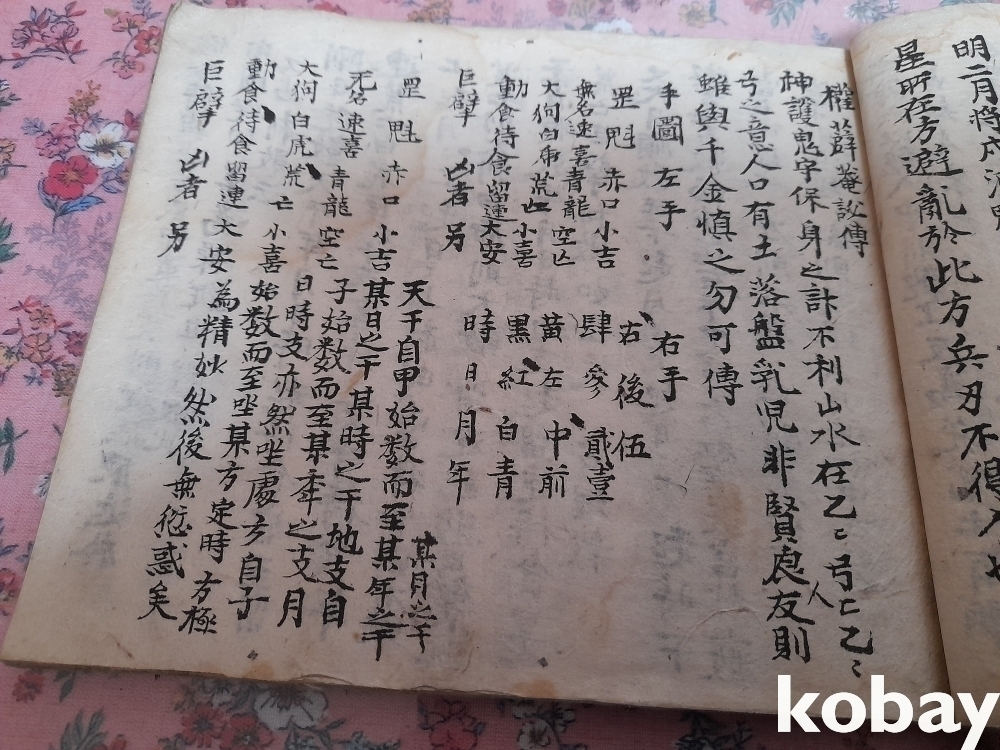 明二月將戌
星所在方避亂於此方兵刃不得入也
權薛菴訟傳
神護鬼字保身之計不利山水在乙〻弓人匚乙〻
弓之意人口有土落盤乳児非賢良友則
雖與千金慎之勿可傳
手圖 左手 右手
罡 魁 赤口 小吉 右 後 伍
無名 速喜 青龍 空亡 肆 參 貳 壹
大狗 白虎 荒亡 小喜 黃 左 中 前
動食 待食 留連 大安 黑 紅 白 青
巨擘 凶者 另 時 日 月 年
天干自甲始数而至某年之干某月之干
罡 魁 赤口 小吉 某日之干某時之干地支自
无名 速喜 青龍 空亡 子始数而至某年之支月
大狗 白虎 荒亡 小喜 日時支亦然坐處方自子
動食 待食 留連 大安 始数而至坐某方定時方極
巨擘 凶者 另 為精妙然後無愆惑矣